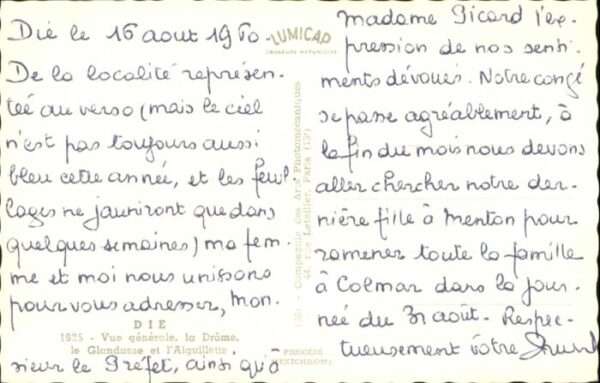 Die le 16 aout 1960.
De la localité représen-
tée au verso (mais le ciel
n'est pas toujours aussi
bleu cette année, et les feuil-
lages ne jauniront que dans
quelques semaines) ma fem-
me et moi nous unissons
pour vous adresser, Mon-
sieur le Préfet, ainsi qu'à
Madame Picard l'ex-
pression de nos senti-
ments dévoués. Notre congé
se passe agréablement, à
la fin du mois nous devons
aller chercher notre der-
nière fille à Menton pour
ramener toute la famille
à Colmar dans la jour-
née du 31 août. Respec-
tueusement vôtre
LUMICAP
Compagnie des Arts Photomécaniques
44, rue Letellier, Paris (15e)
DIE
1625 - Vue générale, la Drôme,
le Glandasse et l'Aiguillette
PROCÉDÉ